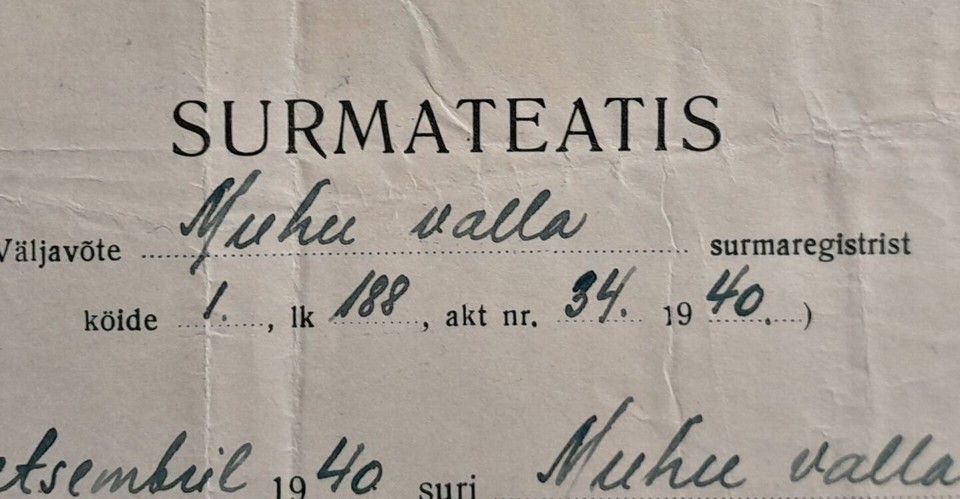 SURMATEATIS
Väljavõte Muhu valla surmaregistrist
köide 1., lk 188, akt nr. 34. 1940.)
etsembril 1940 suri Muhu valla